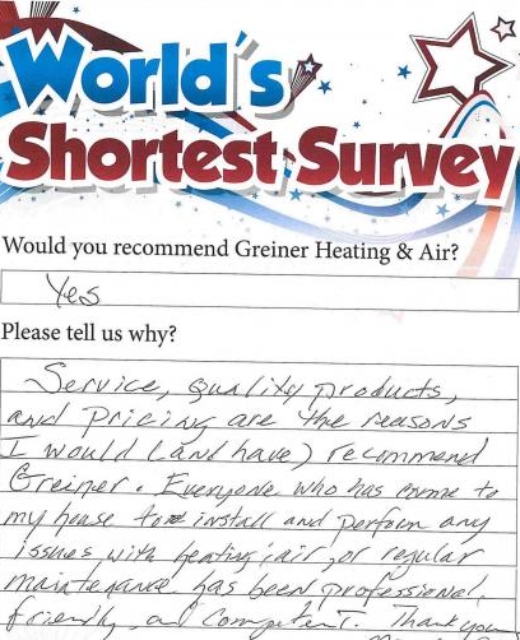 World's
Shortest Survey
Would you recommend Greiner Heating & Air?
Yes
Please tell us why?
Service, quality products,
and pricing are the reasons
I would (and have) recommend
Greiner. Everyone who has come to
my house to install and perform any
issues with heating/air, or regular
maintenance has been professional,
friendly, and competent. Thank you